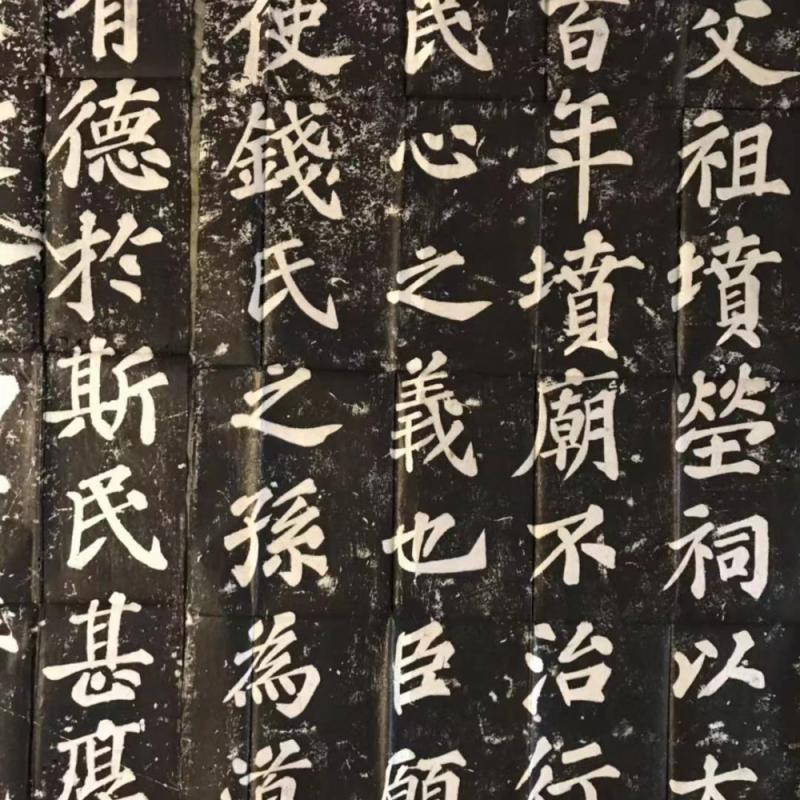 父祖墳塋祠以太
百年墳廟不治行
民心之義也臣願
使錢氏之孫為道
有德於斯民甚厚